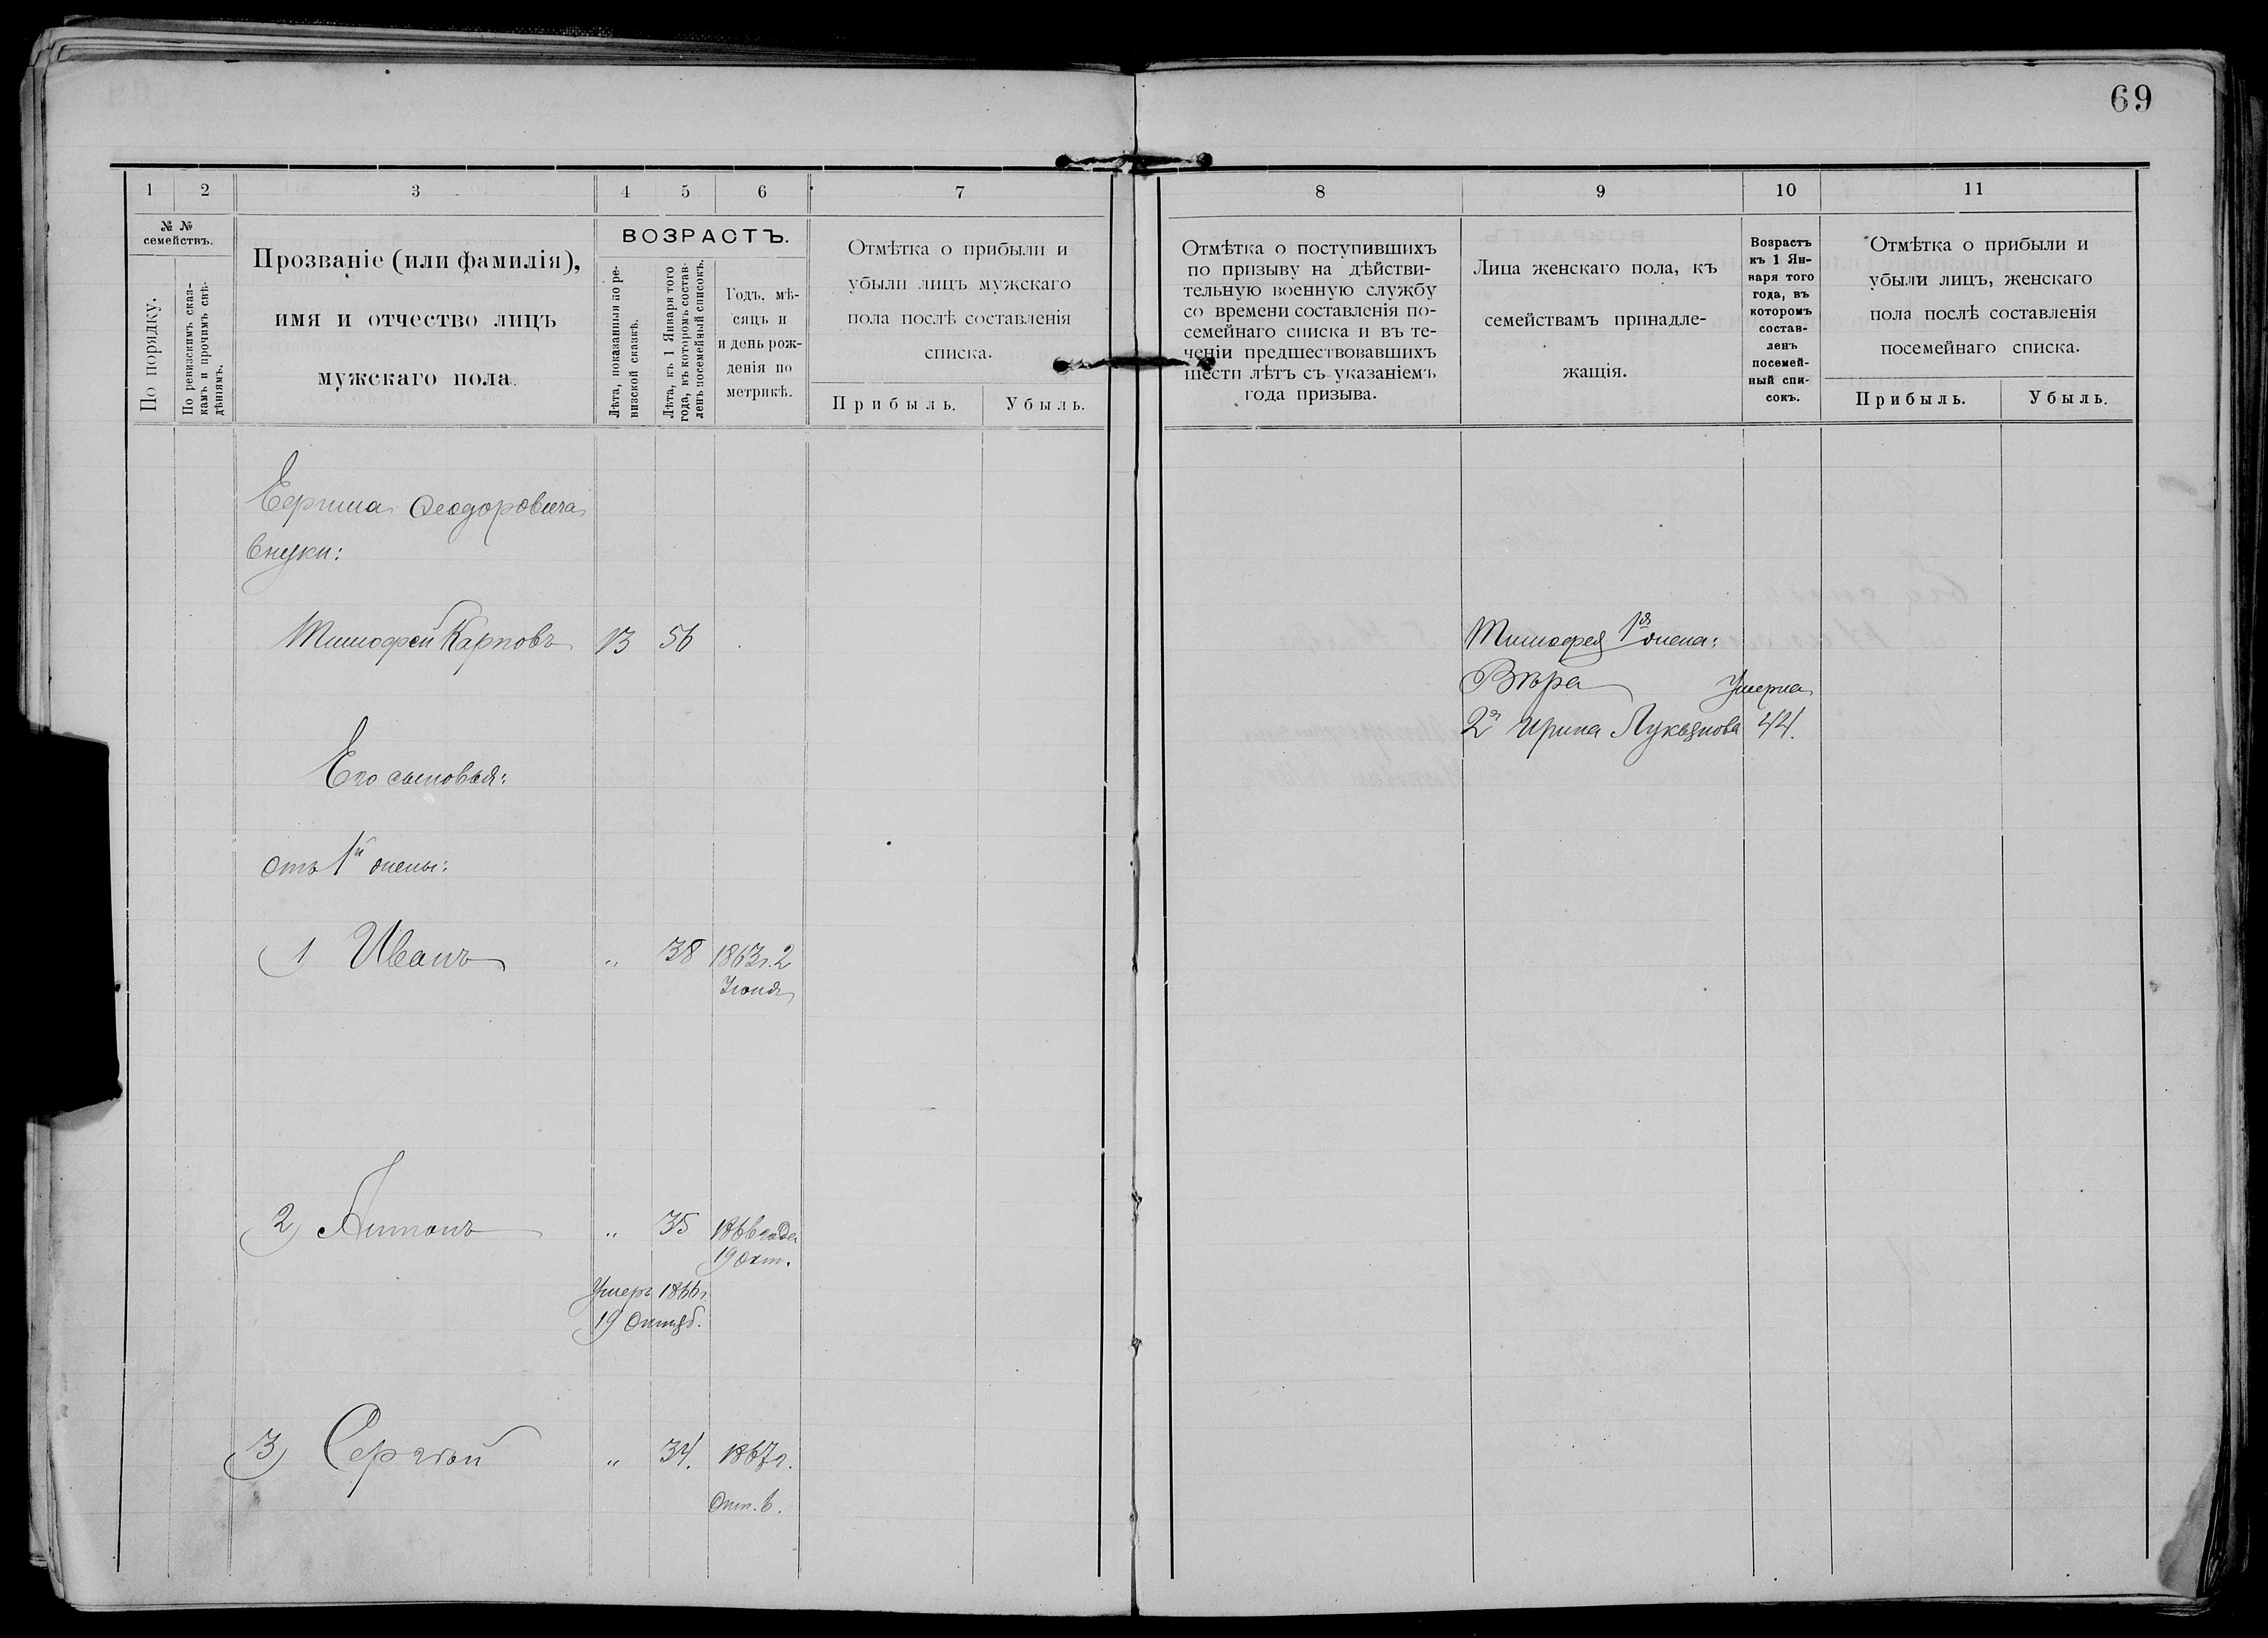 69
1 2 3 4 5 6 7 8 9 10 11
№ №
семействъ.
По порядку.
По ревизскимъ сказ-
камъ и прочимъ свѣ-
дѣніямъ.
Прозваніе (или фамилія),
имя и отчество лицъ
мужскаго пола.
ВОЗРАСТЪ.
Лѣта, показанныя по ре-
визской сказкѣ.
Лѣта, къ 1 Января того
года, въ которомъ состав-
ленъ посемейный списокъ.
Годъ, мѣ-
сяцъ и
и день рож-
денія по
метрикѣ.
Отмѣтка о прибыли и
убыли лицъ мужскаго
пола послѣ составленія
списка.
Прибыль. Убыль.
Отмѣтка о поступившихъ
по призыву на дѣйстви-
тельную военную службу
со времени составленія по-
семейнаго списка и въ те-
ченіи предшествовавшихъ
шести лѣтъ съ указаніемъ
года призыва.
Лица женскаго пола, къ
семействамъ принадле-
жащія.
Возрастъ
къ 1 Ян-
варя того
года, въ
которомъ
состав-
ленъ
посемей-
ный спи-
сокъ.
Отмѣтка о прибыли и
убыли лицъ, женскаго
пола послѣ составленія
посемейнаго списка.
Прибыль. Убыль.
Ѳеодоровича
внуки:
Тимофей Карповъ 13 56
Тимофея 1я жена:
Вѣра Умерла
2я Ирина Лукьянова 44.
Его сыновья:
отъ 1й жены:
1) Иванъ „ 38 1863г. 2
Іюня
2) Антонъ „ 35 1866 года
19 Окт.
Умеръ 1866г
19 Октяб.
3) Сергѣй „ 34. 1867г.
Окт. 6.